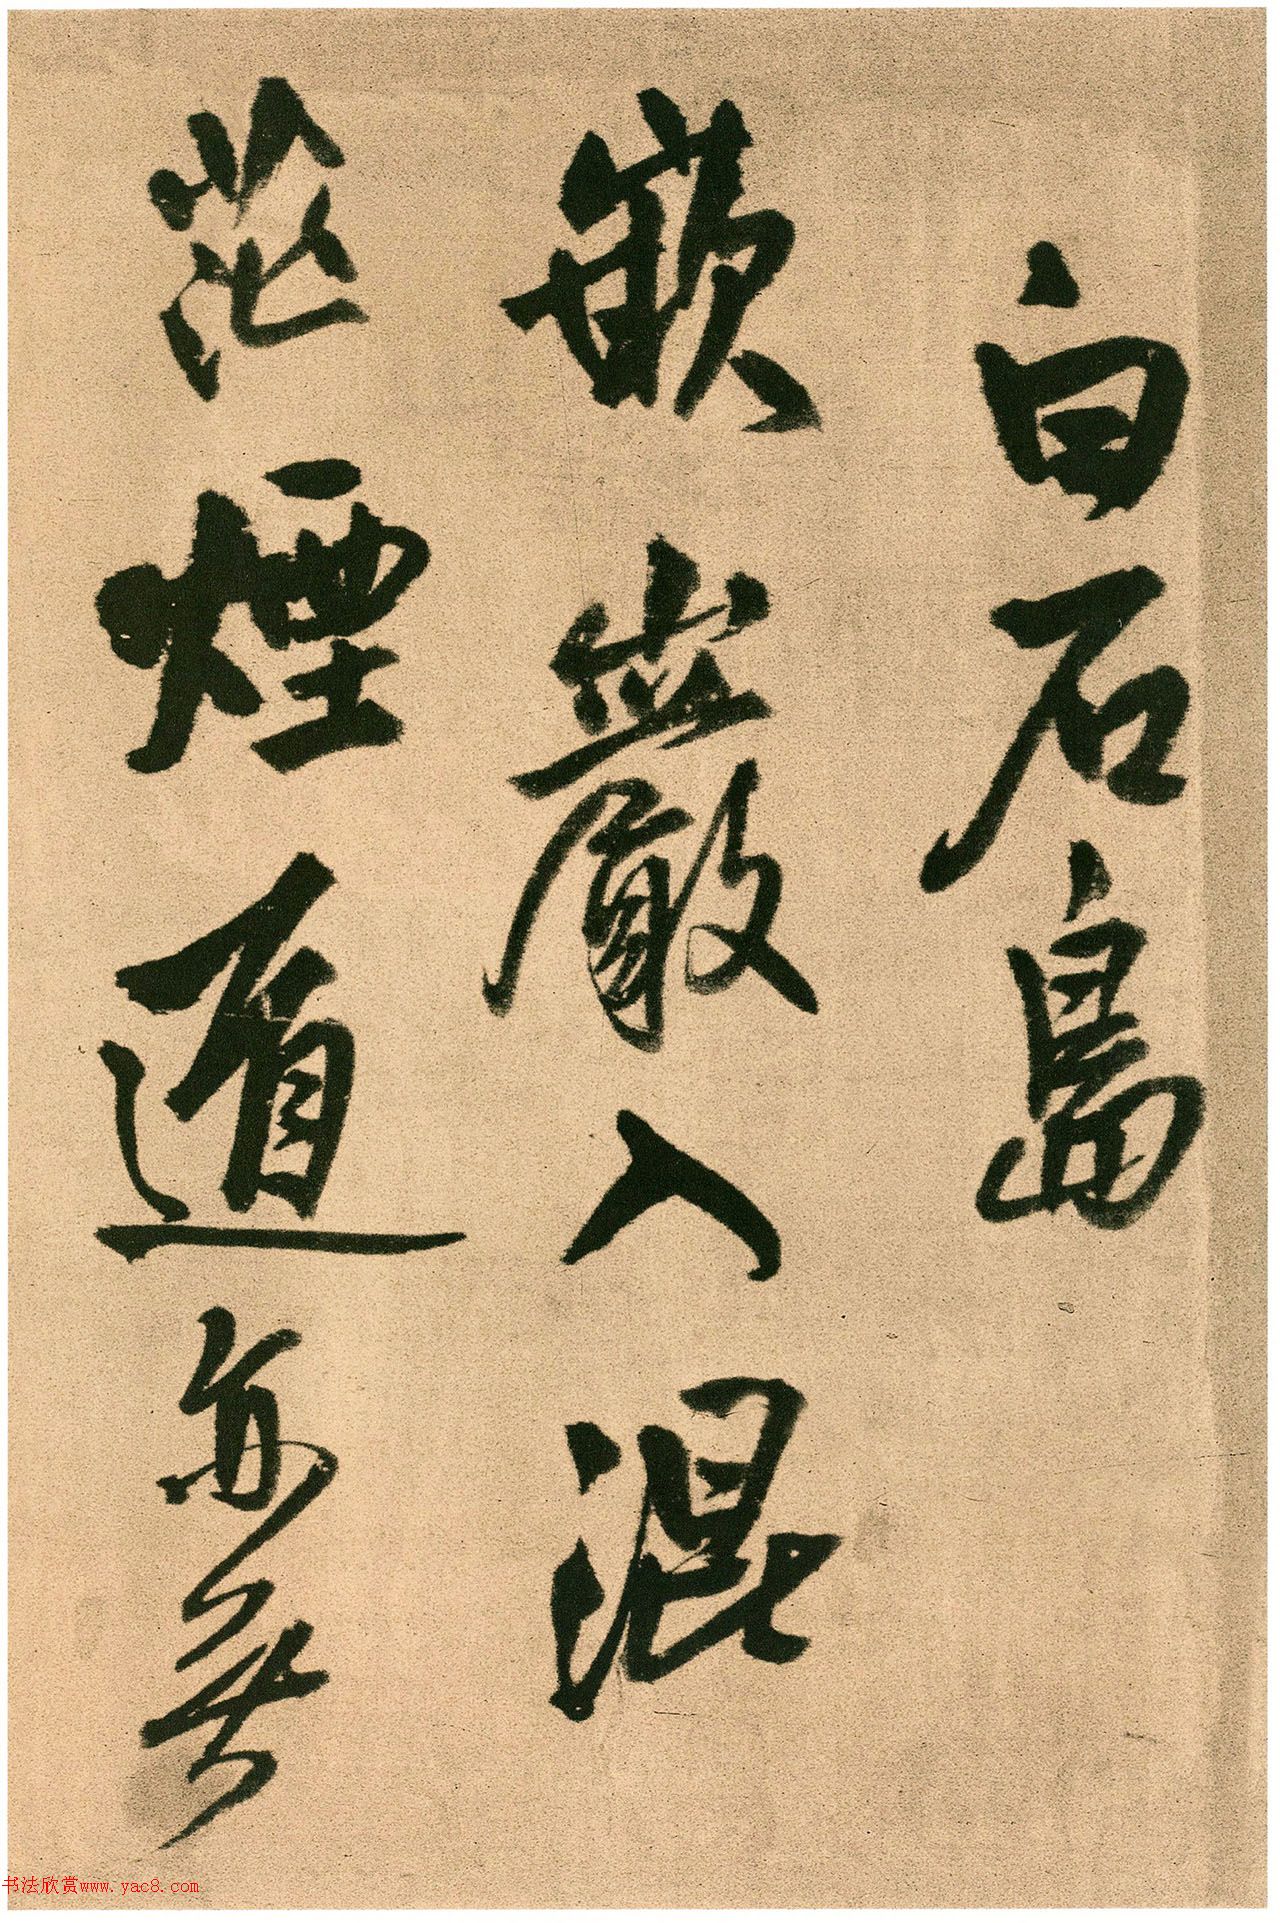 白石島
嵌巖入混
茫煙遁亦無
书法欣赏www.yac8.com